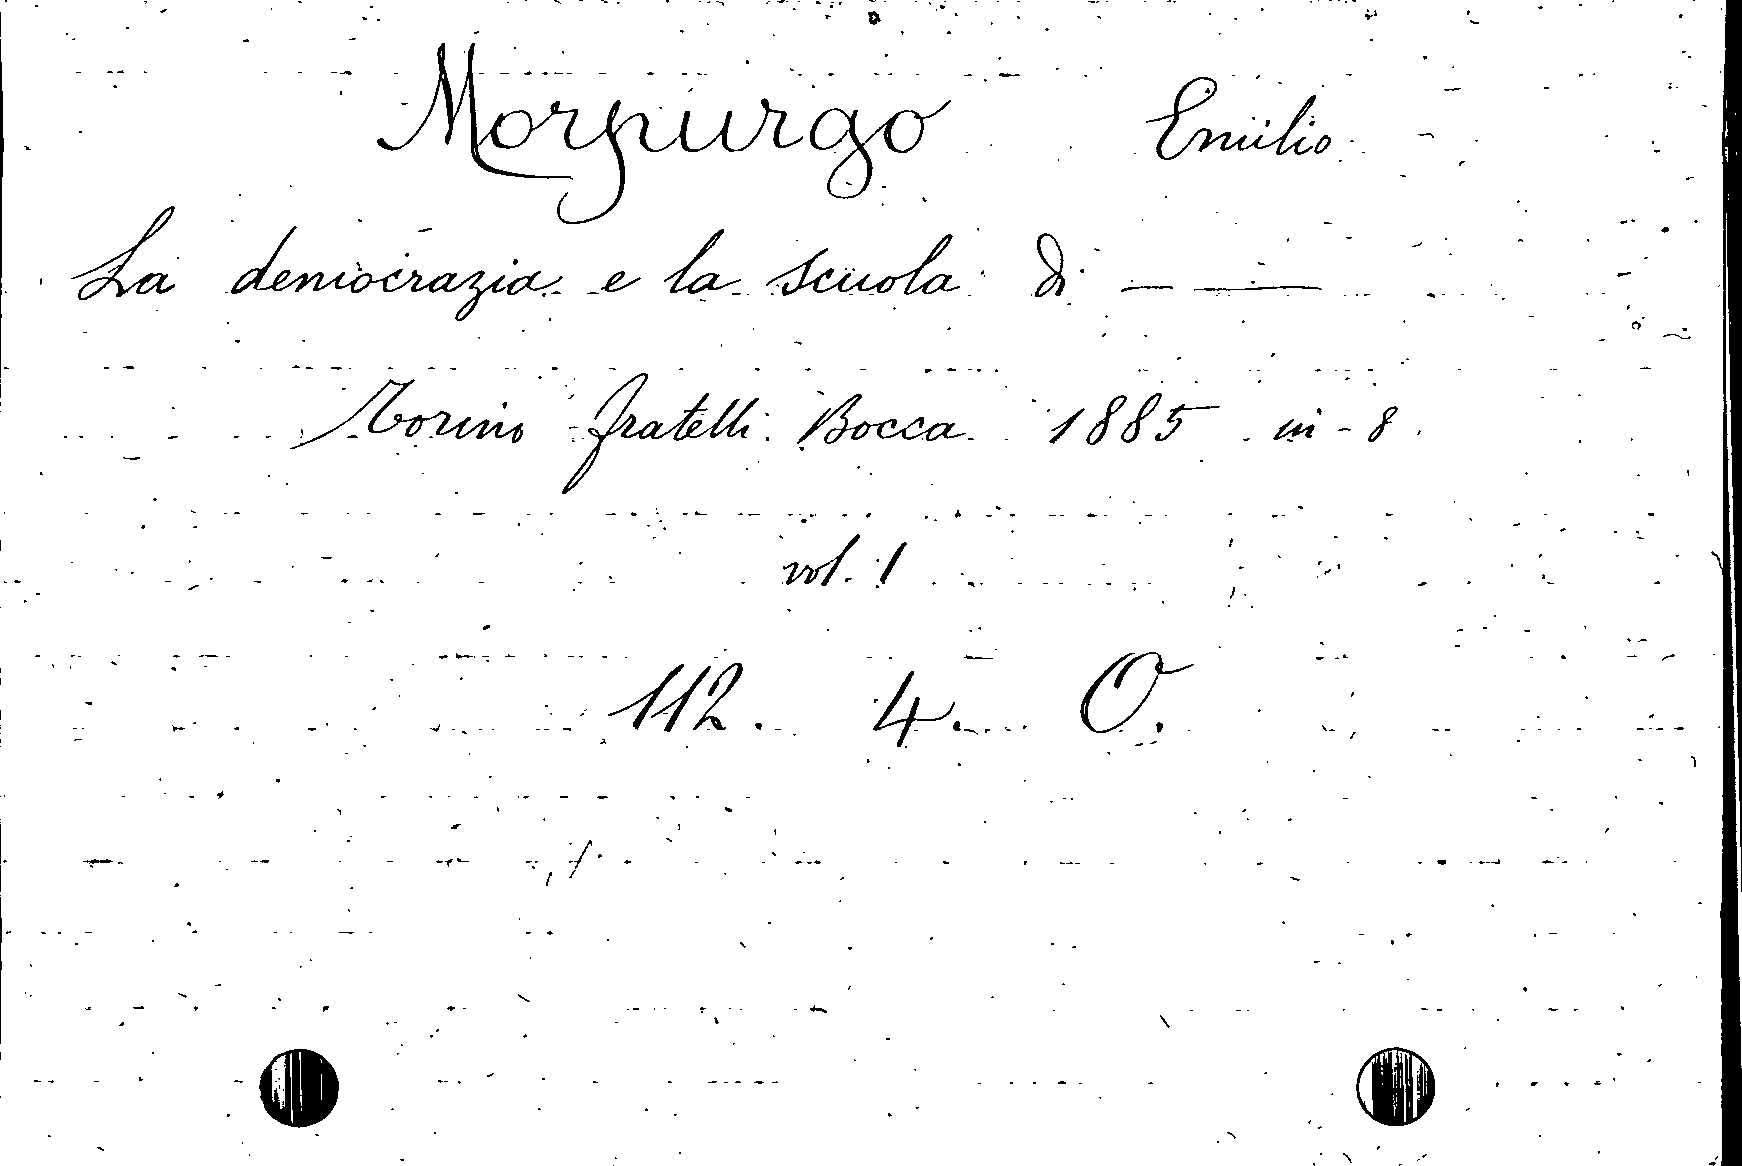 Morpurgo Emilio
La democrazia e la scuola di — ——
Torino Fratelli Bocca 1885 in-8
vol. 1
112. 4. O.